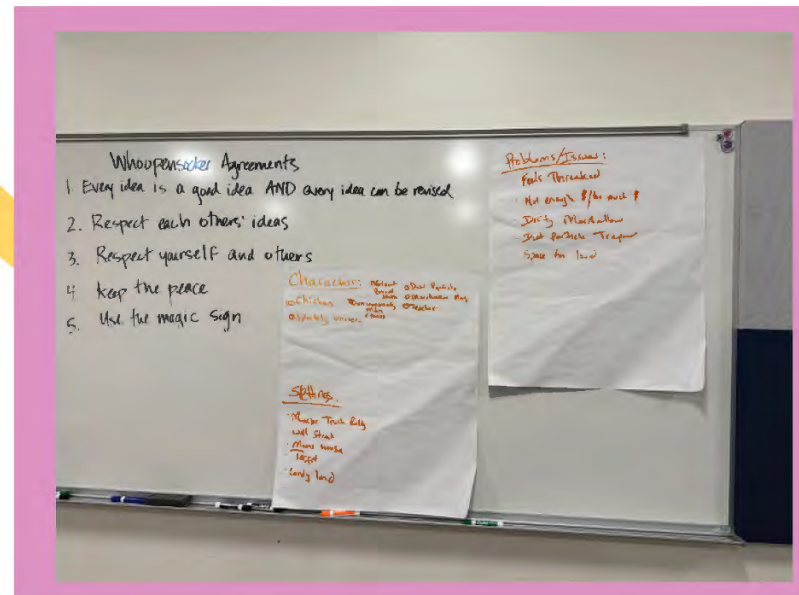 Whoopensocker Agreements
1. Every idea is a good idea AND every idea can be revised
2. Respect each others' ideas
3. Respect yourself and others
4. Keep the peace
5. Use the magic sign
Characters:
Chicken
Teacher
Settings:
Monster Truck Rally
Wall Street
Moms house
Target
Candy land
Problems/Issues:
Feels Threatened
Not enough $/too much $
Dirty Marshmallow
Dust Particle Trapped
Space for land